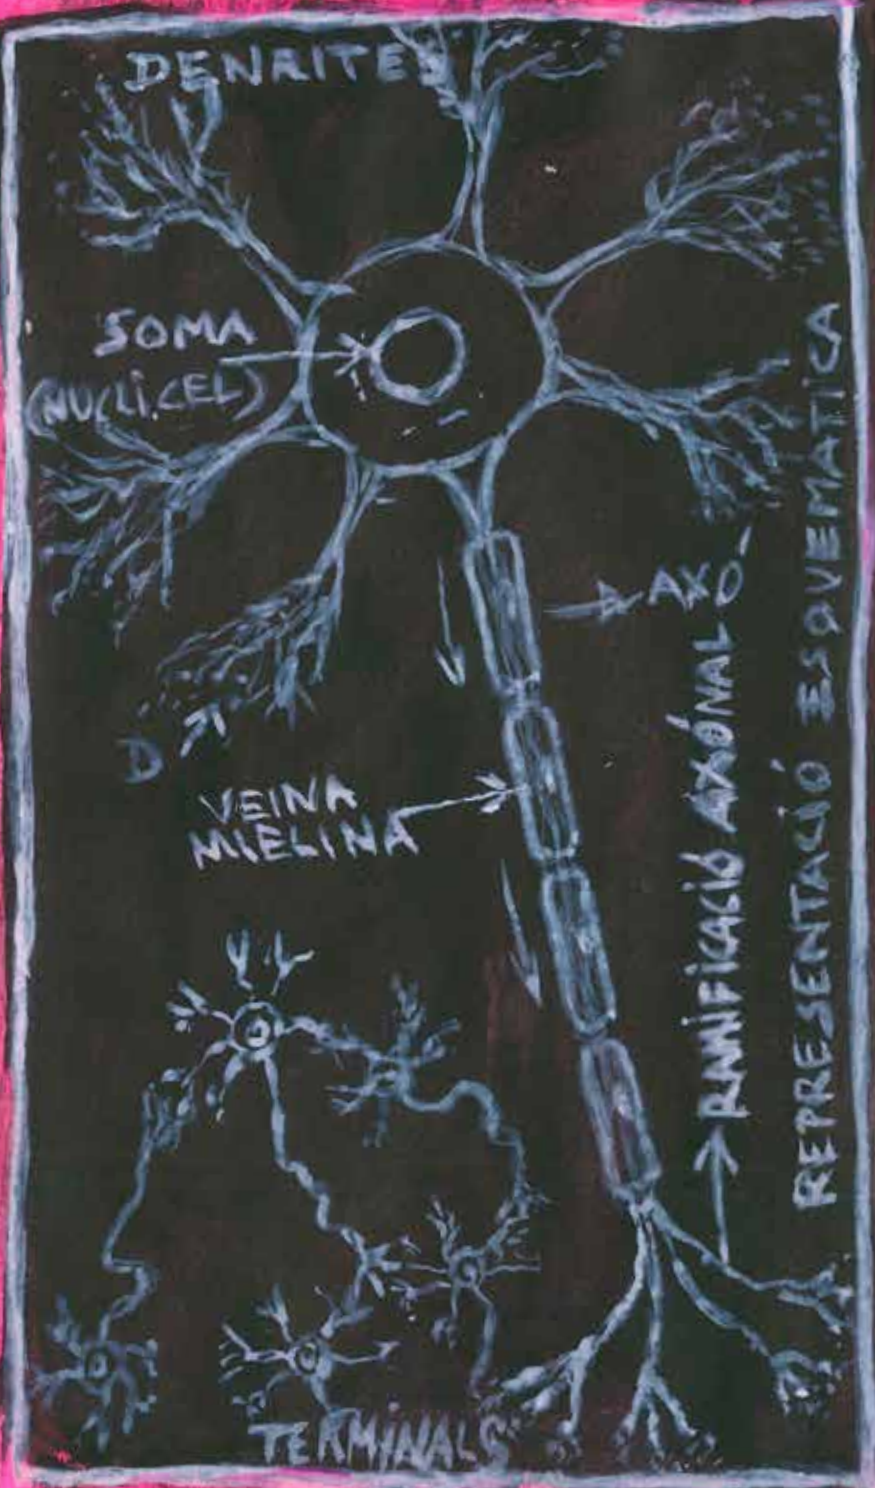 DENRITES
SOMA
(NUCLI.CEL)
AXÓ
D
VEINA
MIELINA
RAMIFICACIÓ AXÓNAL
REPRESENTACIÓ ESQVEMATICA
TERMINALS